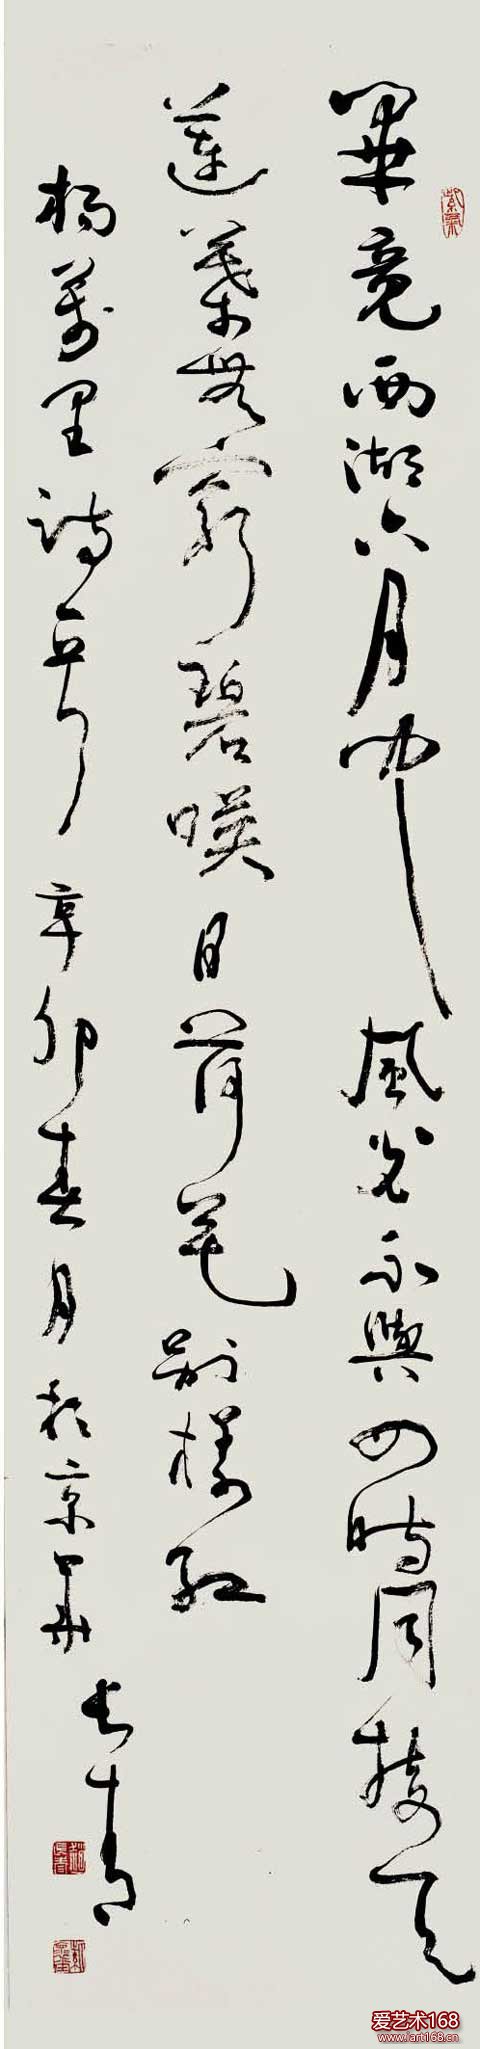 畢竟西湖六月中風光不與四時同接天
蓮葉無窮碧映日荷花別樣紅
楊萬里詩一首辛卯春月於京華
長青
爱艺术168
www.iart168.cn